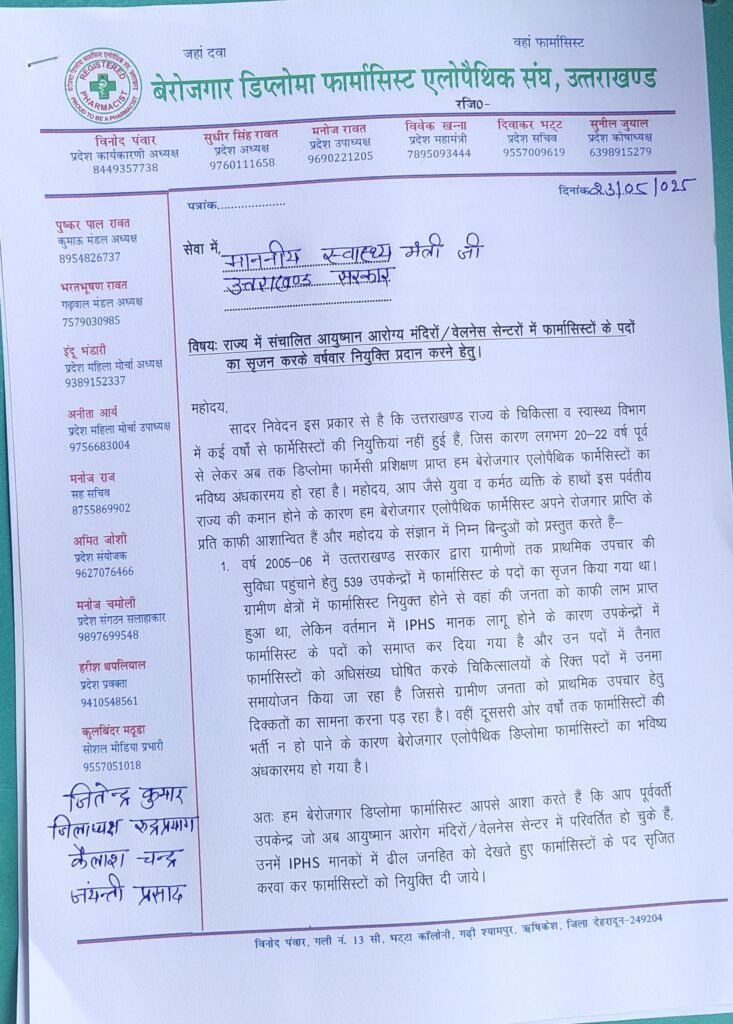 जहां दवा
वहां फार्मासिस्ट
REGISTERED
PHARMACIST
PROUD TO BE A PHARMACIST
बेरोजगार डिप्लोमा फार्मासिस्ट एलोपैथिक संघ, उत्तराखण्ड
रजि0-
विनोद पंवार
प्रदेश कार्यकारणी अध्यक्ष
8449357738
सुधीर सिंह रावत
प्रदेश अध्यक्ष
9760111658
मनोज रावत
प्रदेश उपाध्यक्ष
9690221205
विवेक खन्ना
प्रदेश महामंत्री
7895093444
दिवाकर भट्ट
प्रदेश सचिव
9557009619
सुनील जुयाल
प्रदेश कोषाध्यक्ष
6398915279
पुष्कर पाल रावत
कुमाऊ मंडल अध्यक्ष
8954826737
भरतभूषण रावत
गढ़वाल मंडल अध्यक्ष
7579030985
इंदु भंडारी
प्रदेश महिला मोर्चा अध्यक्ष
9389152337
अनीता आर्य
प्रदेश महिला मोर्चा उपाध्यक्ष
9756683004
मनोज राज
सह सचिव
8755869902
अमित जोशी
प्रदेश संयोजक
9627076466
मनोज चमोली
प्रदेश संगठन सलाहाकार
9897699548
हरीश थपलियाल
प्रदेश प्रवक्ता
9410548561
कुलबिंदर मठ्ठडा
सोशल मीडिया प्रभारी
9557051018
जितेन्द्र कुमार
जिलाध्यक्ष रुद्रप्रयाग
कैलाश चन्द्र
जयन्ती प्रसाद
पत्रांक...................
दिनांक 23/05/025
सेवा में, माननीय स्वास्थ्य मंत्री जी
उत्तराखण्ड सरकार
विषयः राज्य में संचालित आयुष्मान आरोग्य मंदिरों/वेलनेस सेन्टरों में फार्मासिस्टों के पदों
का सृजन करके वर्षवार नियुक्ति प्रदान करने हेतु।
महोदय,
सादर निवेदन इस प्रकार से है कि उत्तराखण्ड राज्य के चिकित्सा व स्वास्थ्य विभाग
में कई वर्षो से फार्मेसिस्टों की नियुक्तियां नहीं हुई हैं, जिस कारण लगभग 20-22 वर्ष पूर्व
से लेकर अब तक डिप्लोमा फार्मेसी प्रशिक्षण प्राप्त हम बेरोजगार एलोपैथिक फार्मेसिस्टों का
भविष्य अंधकारमय हो रहा है। महोदय, आप जैसे युवा व कर्मठ व्यक्ति के हाथों इस पर्वतीय
राज्य की कमान होने के कारण हम बेरोजगार एलोपैथिक फार्मेसिस्ट अपने रोजगार प्राप्ति के
प्रति काफी आशान्वित हैं और महोदय के संज्ञान में निम्न बिन्दुओं को प्रस्तुत करते हैं–
1. वर्ष 2005-06 में उत्तराखण्ड सरकार द्वारा ग्रामीणों तक प्राथमिक उपचार की
सुविधा पहुंचाने हेतु 539 उपकेन्द्रों में फार्मासिस्ट के पदों का सृजन किया गया था।
ग्रामीण क्षेत्रों में फार्मासिस्ट नियुक्त होने से वहां की जनता को काफी लाभ प्राप्त
हुआ था, लेकिन वर्तमान में IPHS मानक लागू होने के कारण उपकेन्द्रों में
फार्मासिस्ट के पदों को समाप्त कर दिया गया है और उन पदों में तैनात
फार्मासिस्टों को अधिसंख्य घोषित करके चिकित्सालयों के रिक्त पदों में उनमा
समायोजन किया जा रहा है जिससे ग्रामीण जनता को प्राथमिक उपचार हेतु
दिक्कतों का सामना करना पड़ रहा है। वहीं दूससरी ओर वर्षों तक फार्मासिस्टों की
भर्ती न हो पाने के कारण बेरोजगार एलोपैथिक डिप्लोमा फार्मासिस्टों का भविष्य
अंधकारमय हो गया है।
अतः हम बेरोजगार डिप्लोमा फार्मासिस्ट आपसे आशा करते हैं कि आप पूर्ववर्ती
उपकेन्द्र जो अब आयुष्मान आरोग मंदिरों/वेलनेस सेन्टर में परिवर्तित हो चुके हैं,
उनमें IPHS मानकों में ढील जनहित को देखते हुए फार्मासिस्टों के पद सृजित
करवा कर फार्मासिस्टों को नियुक्ति दी जाये।
विनोद पंवार, गली नं. 13 सी, भट्टा कॉलोनी, गढ़ी श्यामपुर, ऋषिकेश, जिला देहरादून-249204